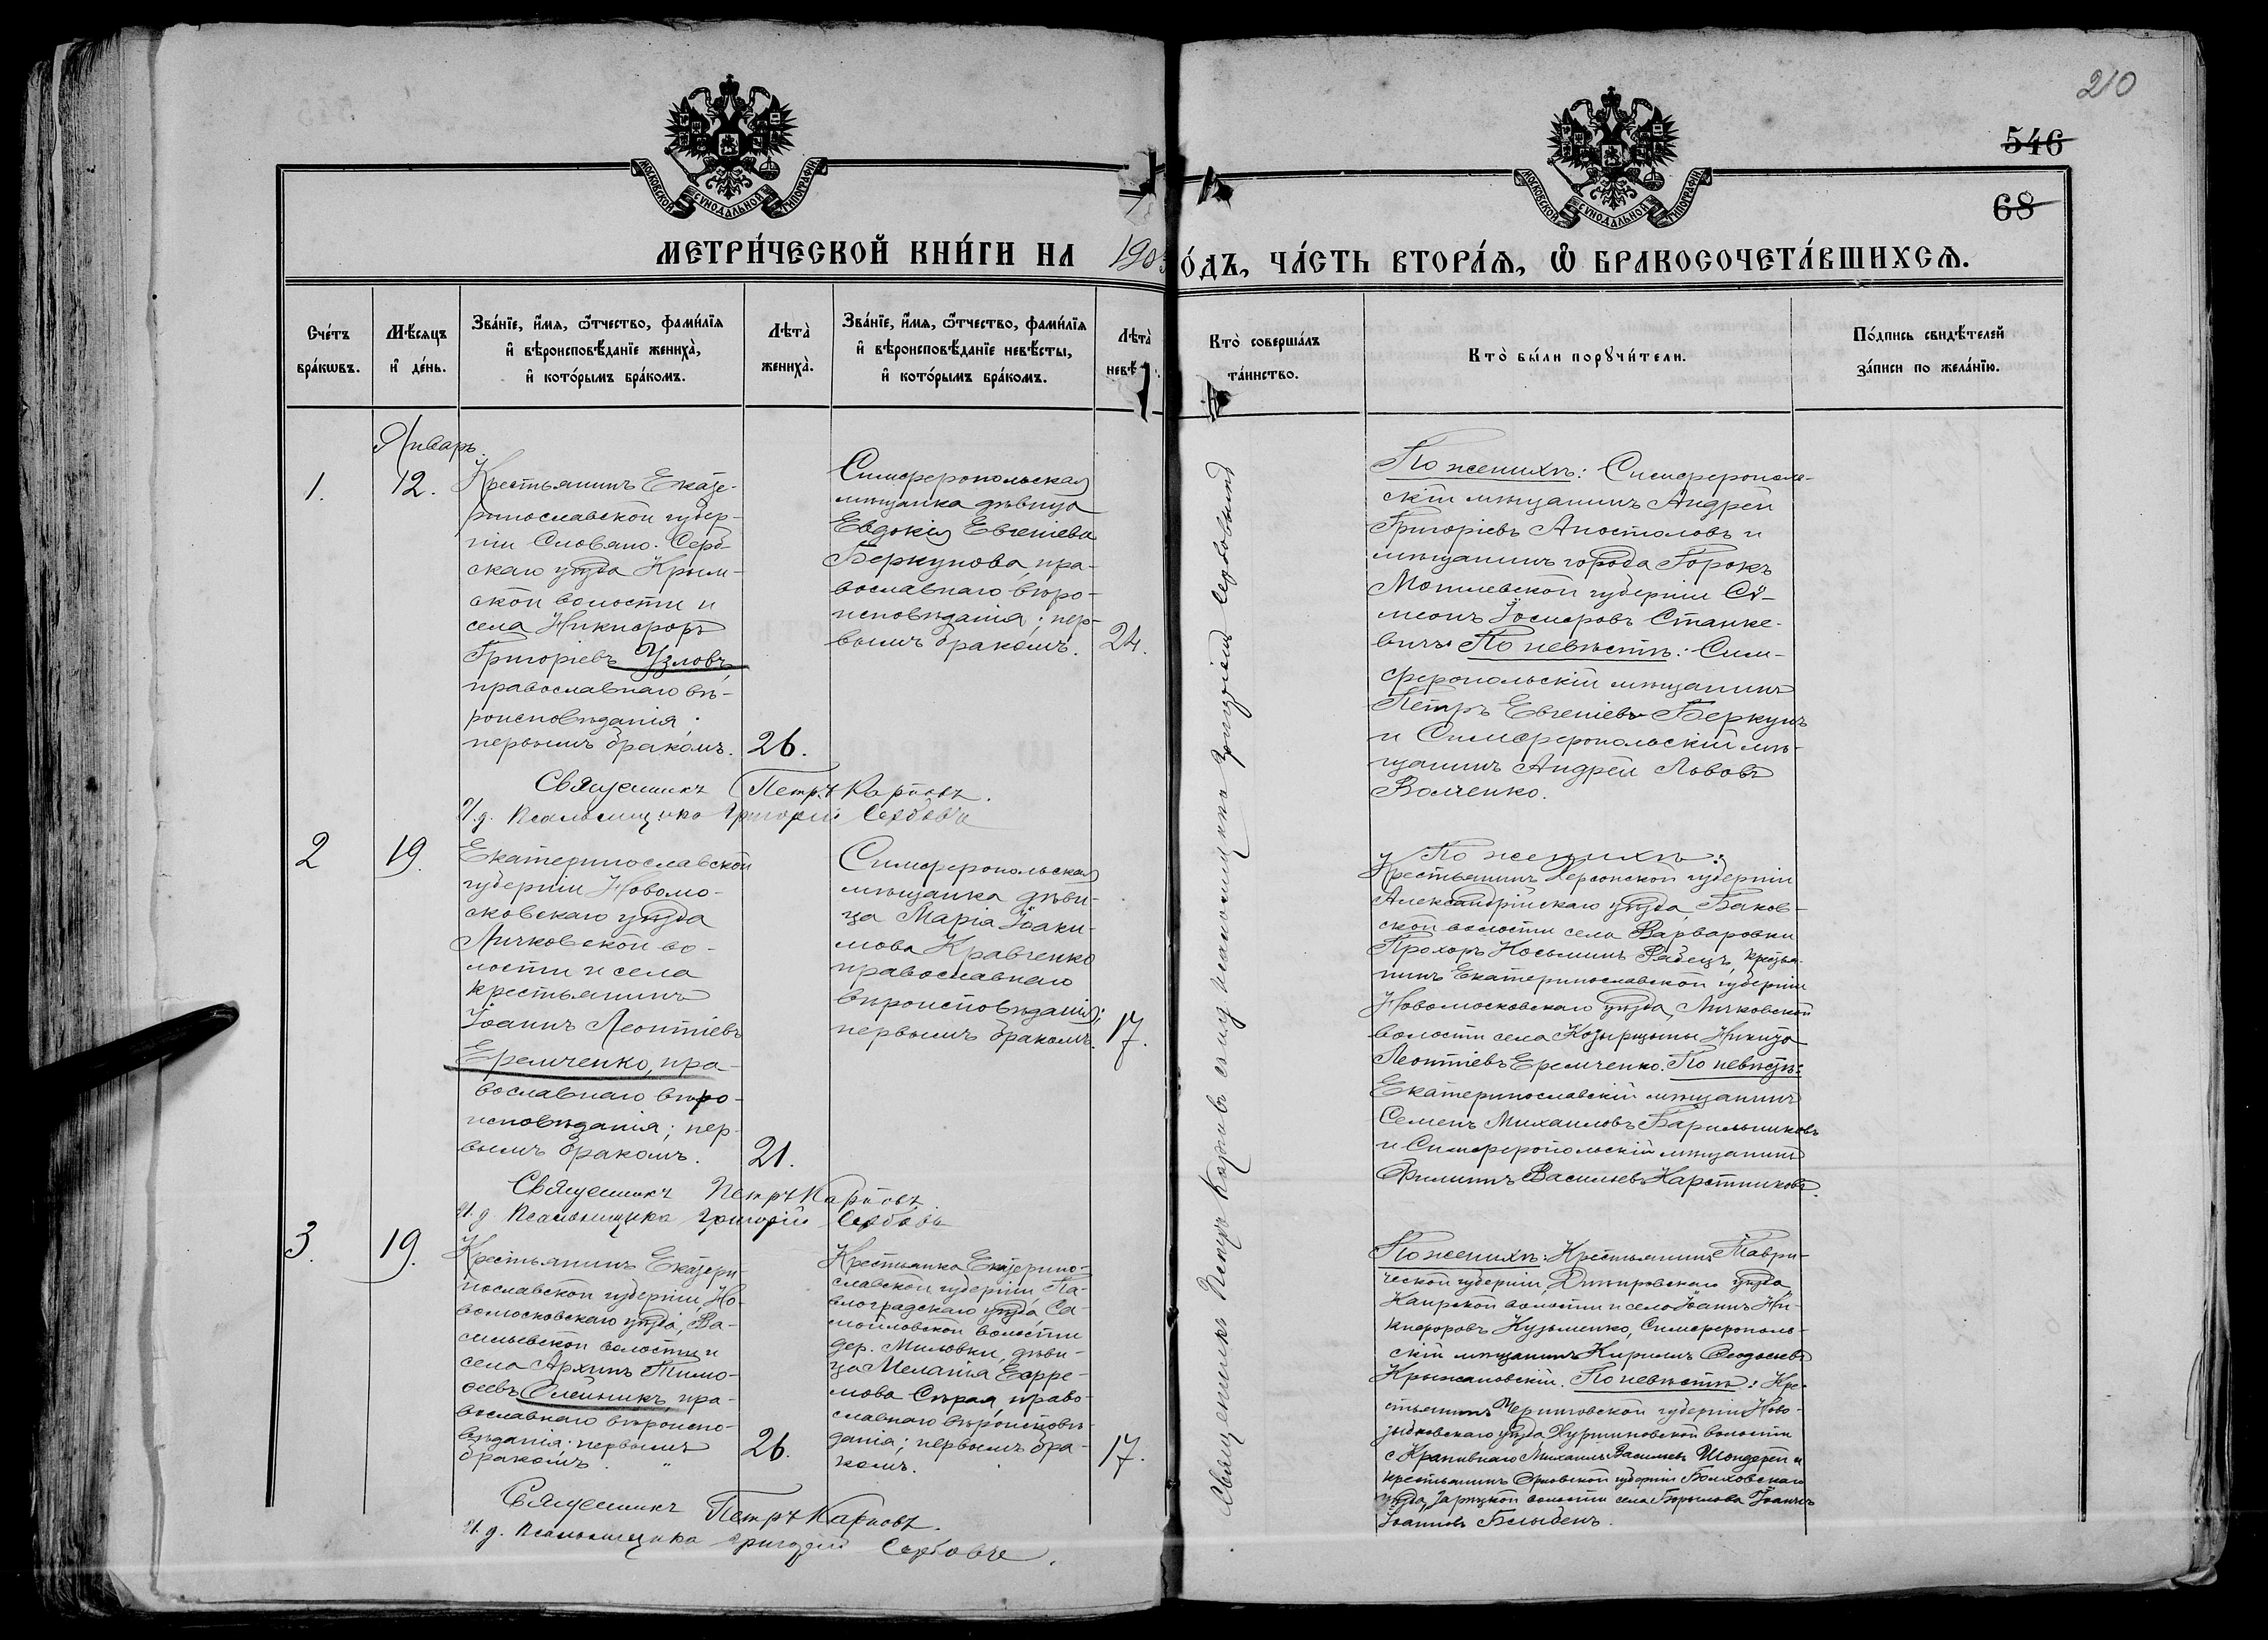 210
546
68
МОСКОВСКОЙ СѴНОДАЛЬНОЙ ТИПОГРАФІИ
МОСКОВСКОЙ СѴНОДАЛЬНОЙ ТИПОГРАФІИ
МЕТРИ́ЧЕСКОЙ КНИ́ГИ НА 1903
О́ДЪ, ЧА́СТЬ ВТОРА́Ѧ, Ѡ҆ БРАКОСОЧЕТА́ВШИХСѦ.
Сче́тъ
бра́кѡвъ.
Мѣ́сѧцъ
и҆ де́нь.
Зва́нїе, и҆́мѧ, ѻ҆́тчество, фами́лїѧ
и҆ вѣроисповѣ́данїе жениха̀,
и҆ кото́рымъ бра́комъ.
Лѣта̀
жениха̀.
Зва́нїе, и҆́мѧ, ѻ҆́тчество, фами́лїѧ
и҆ вѣроисповѣ́данїе невѣ́сты,
и҆ кото́рымъ бра́комъ.
Лѣта̀
невѣ
Кто̀ соверша́лъ
та́инство.
Кто̀ бы́ли порꙋчи́тели.
По́дпись свидѣ́телей
за́писи по жела́нїю.
Январь.
1.
12.
Крестьянинъ Екате-
ринославской губер-
ніи Словяно-Серб-
скаго уѣзда Крым-
ской волости и
села Никифоръ
Григоріевъ Узловъ,
православнаго вѣ-
роисповѣданія;
первымъ бракомъ.
26.
Симферопольская
мѣщанка дѣвица
Евдокія Евгеніева
Беркунова, пра-
вославнаго вѣро-
исповѣданія; пер-
вымъ бракомъ.
24.
По женихѣ: Симферополь-
скій мѣщанинъ Андрей
Григоріевъ Апостоловъ и
мѣщанинъ города Горокъ
Могилевской губерніи Сѵ-
меонъ Іосифовъ Станке-
вичъ. По невѣстѣ: Сим-
феропольскій мѣщанинъ
Петръ Евгеніевъ Беркунъ
и Симферопольскій мѣ-
щанинъ Андрей Львовъ
Волченко.
Священникъ Петръ Карповъ.
И. д. Псаломщика Григорій Сербовъ
2
19.
Екатеринославской
губерніи Новомо-
сковскаго уѣзда
Личковской во-
лости и села
крестьянинъ
Іоаннъ Леонтіевъ
Еремченко, пра-
вославнаго вѣро-
исповѣданія; пер-
вымъ бракомъ.
21.
Симферопольская
мѣщанка дѣви-
ца Марія Іоаки-
мова Кравченко
православнаго
вѣроисповѣданія;
первымъ бракомъ.
17.
По женихѣ:
Крестьянинъ Херсонской губерніи
Александрійскаго уѣзда, Баков-
ской волости села Варваровки
Прохоръ Косьминъ Рабецъ, крестья-
нинъ Екатеринославской губерніи
Новомосковскаго уѣзда, Личковской
волости села Козырщины Никита
Леонтіевъ Еремченко. По невѣстѣ:
Екатеринославскій мѣщанинъ
Семенъ Михаиловъ Барильниковъ
и Симферопольскій мѣщанинъ
Филиппъ Васильевъ Карстниковъ.
Священникъ Петръ Карповъ
И. д. Псаломщика Григорій Сербовъ
3.
19.
Крестьянинъ Екатери-
нославской губерніи, Но-
вомосковскаго уѣзда, Ва-
сильевской волости и
села Архипъ Тимо-
ѳеевъ Олейникъ, пра-
вославнаго вѣроиспо-
вѣданія; первымъ
бракомъ.
26.
Крестьянка Екатерино-
славской губерніи, Па-
влоградскаго уѣзда, Са-
мойловской волости
дер. Миловки, дѣви-
ца Меланія Ефре-
мова Сѣрая, право-
славнаго вѣроисповѣ-
данія; первымъ бра-
комъ.
17.
По женихѣ: Крестьянинъ Таври-
ческой губерніи, Днѣпровскаго уѣзда
Каирской волости и села Іоаннъ Ни-
кифоровъ Кузьменко, Симферополь-
скій мѣщанинъ Кириллъ Ѳеодосіевъ
Крыжановскій. По невѣстѣ: Кре-
стьянинъ Черниговской губерніи Ново-
зыбковскаго уѣзда
Михаилъ Васильевъ и
крестьянинъ Орловской губерніи Болховскаго
уѣзда, волости села Іоаннъ
Іоанновъ
Священникъ Петръ Карповъ.
И. д. Псаломщика Григорій Сербовъ.
Священникъ Петръ Карповъ съ и. д. псаломщика Григоріемъ Сербовымъ